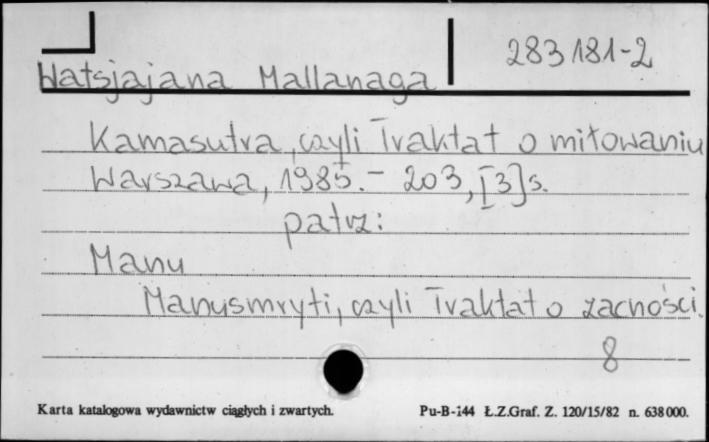 283181-2
Watsjajana Mallanaga
Kamasutra, czyli Traktat o miłowaniu
Warszawa, 1985. – 203, [3] s.
patrz:
Manu
Manusmryti, czyli Traktat o zacności.
8
Karta katalogowa wydawnictw ciągłych i zwartych.
Pu-B-144 Ł.Z.Graf. Z. 120/15/82 n. 638000.